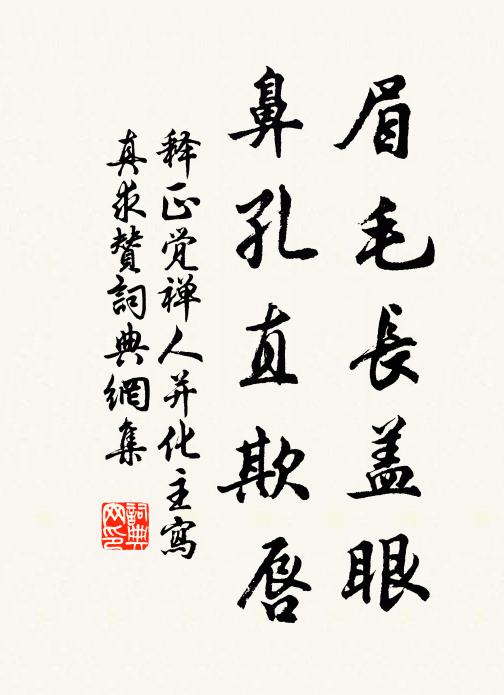 眉毛長盖眼
鼻孔直欺唇
释正觉禅人并化主寫
真求贊詞典網集
詞典网印